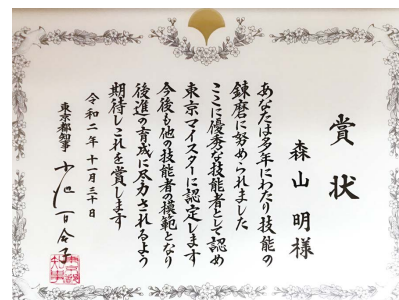 賞状
森山 明様
あなたは多年にわたり技能の
錬磨に努められました
ここに優秀な技能者として認め
東京マイスターに認定します
今後も他の技能者の模範となり
後進の育成に尽力されるよう
期待しこれを賞します
令和二年十一月三十日
東京都知事 小池百合子